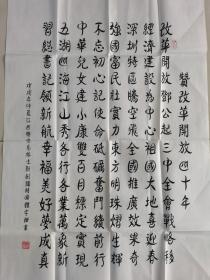 贊改革開放四十年
改革開放鄧公起三中全會戰略移
經濟建設為中心祖國大地喜迎春
深圳特區騰空飛全國推廣效果奇
強國富民壯實力東方明珠熠生輝
不忘初心記使命砥礪奮鬥續前行
中華兒女建小康雙百目標定實現
五湖四海江山秀各行各業萬象新
習總書記領新航幸福美好夢成真
戊戌年仲夏江西